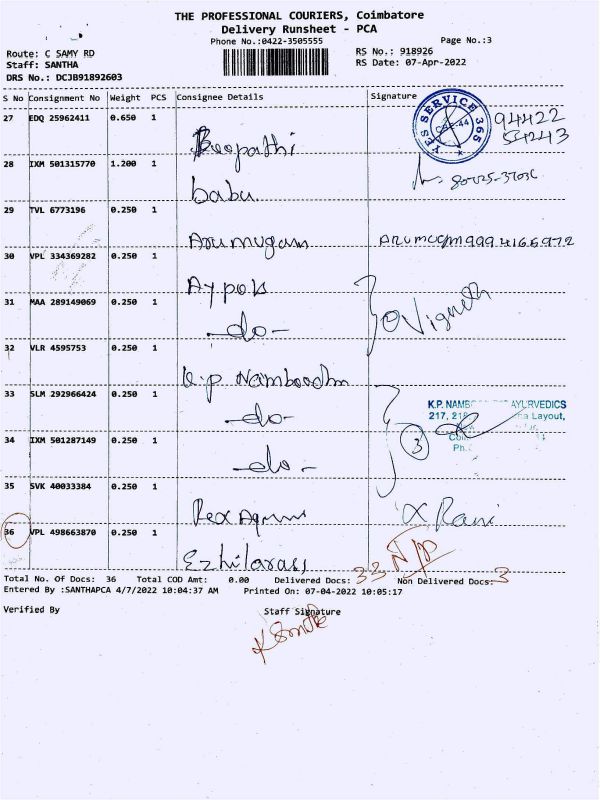 THE PROFESSIONAL COURIERS, Coimbatore
Delivery Runsheet - PCA
Phone No.:0422-3505555
Page No.:3
Route: C SAMY RD
RS No.: 918926
Staff: SANTHA
RS Date: 07-Apr-2022
DRS No.: DCJB91892603
S No Consignment No Weight PCS Consignee Details Signature
27 EDQ 25962411 0.650 1
YES SERVICE 365
94422
54243
28 IXM 501315770 1.200 1
babu
29 TVL 6773196 0.250 1
Arumugam
30 VPL 334369282 0.250 1
31 MAA 289149069 0.250 1
-do-
Vignesh
32 VLR 4595753 0.250 1
K.P Namboodhm
33 SLM 292966424 0.250 1
-do-
K.P. NAMB AYURVEDICS
217, 218 Layout,
34 IXM 501287149 0.250 1
-do-
3
Ph.
35 SVK 40033384 0.250 1
Rani
36 VPL 498663870 0.250 1
Ezhilarasi
Total No. Of Docs: 36 Total COD Amt: 0.00 Delivered Docs: 33 Non Delivered Docs: 3
Entered By :SANTHAPCA 4/7/2022 10:04:37 AM Printed On: 07-04-2022 10:05:17
Verified By Staff Signature